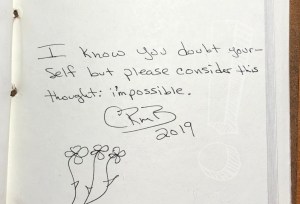 I know you doubt your-
self but please consider this
thought: i'mpossible.
CRMB
2019